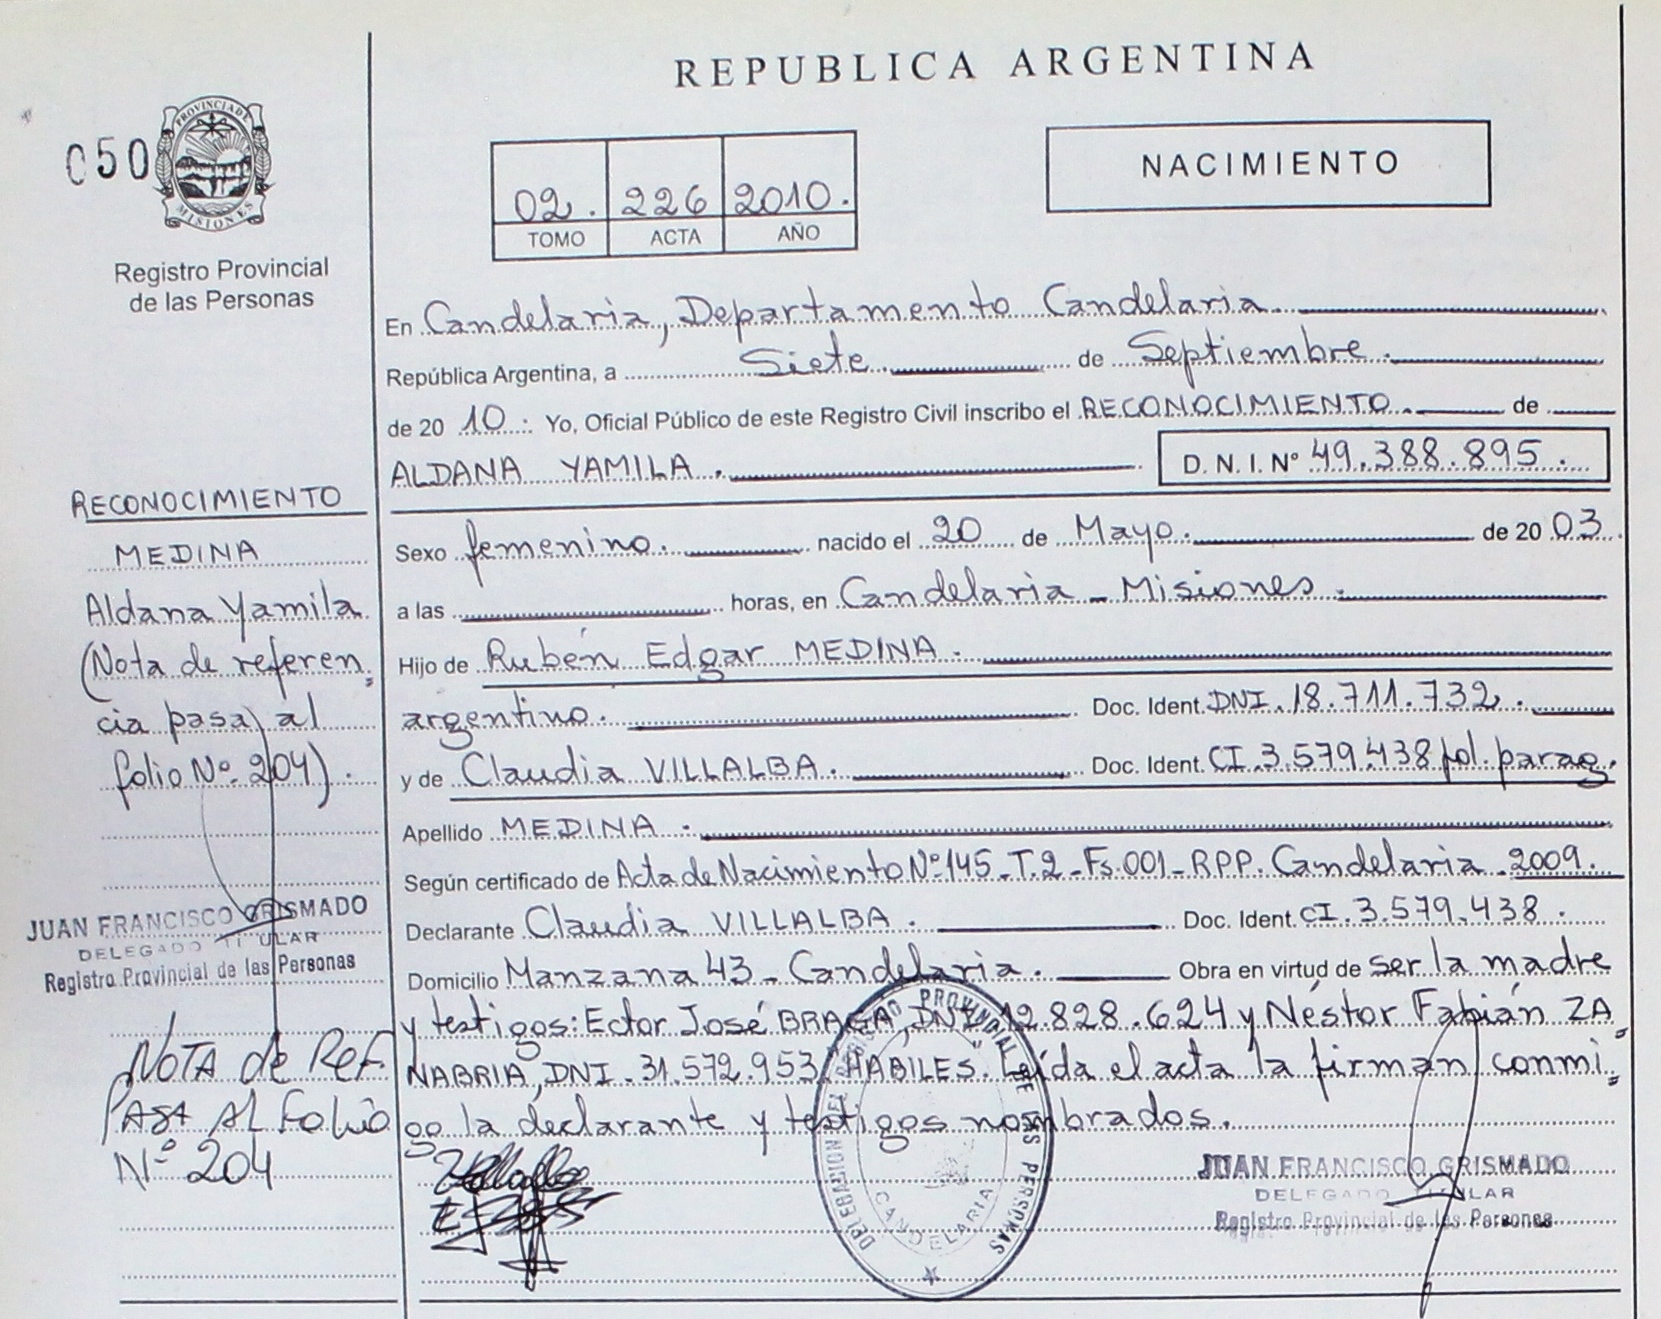 REPUBLICA ARGENTINA
050
PROVINCIA DE
MISIONES
Registro Provincial
de las Personas
02. 226 2010.
TOMO ACTA AÑO
NACIMIENTO
En Candelaria, Departamento Candelaria
República Argentina, a Siete de Septiembre.
de 20 10. Yo, Oficial Público de este Registro Civil inscribo el RECONOCIMIENTO. de
ALDANA YAMILA.
D. N. I. Nº 49.388.895.
Sexo femenino. nacido el 20 de Mayo. de 20 03.
a las horas, en Candelaria - Misiones.
Hijo de Rubén Edgar MEDINA.
argentino. Doc. Ident. DNI. 18.711.732.
y de Claudia VILLALBA. Doc. Ident. CI.3.579.438 pol. parag.
Apellido MEDINA.
Según certificado de Acta de Nacimiento Nº 145 - T.2 - Fs.001 - RPP. Candelaria - 2009.
Declarante Claudia VILLALBA. Doc. Ident. CI.3.579.438.
Domicilio Manzana 43 - Candelaria. Obra en virtud de ser la madre
y testigos: Ector José BRAGA, DNI. 12.828.624 y Néstor Fabián ZA=
NABRIA, DNI. 31.572.953. HABILES. Leída el acta la firman conmi=
go la declarante y testigos nombrados.
RECONOCIMIENTO
MEDINA
Aldana Yamila
(Nota de referen=
cia pasa al
folio Nº 204).
JUAN FRANCISCO GRISMADO
DELEGADO TITULAR
Registro Provincial de las Personas
NOTA de Ref.
PASA AL Folio
Nº 204
DELEGACION DEL REGISTRO PROVINCIAL DE LAS PERSONAS
CANDELARIA
JUAN FRANCISCO GRISMADO
DELEGADO TITULAR
Registro Provincial de las Personas